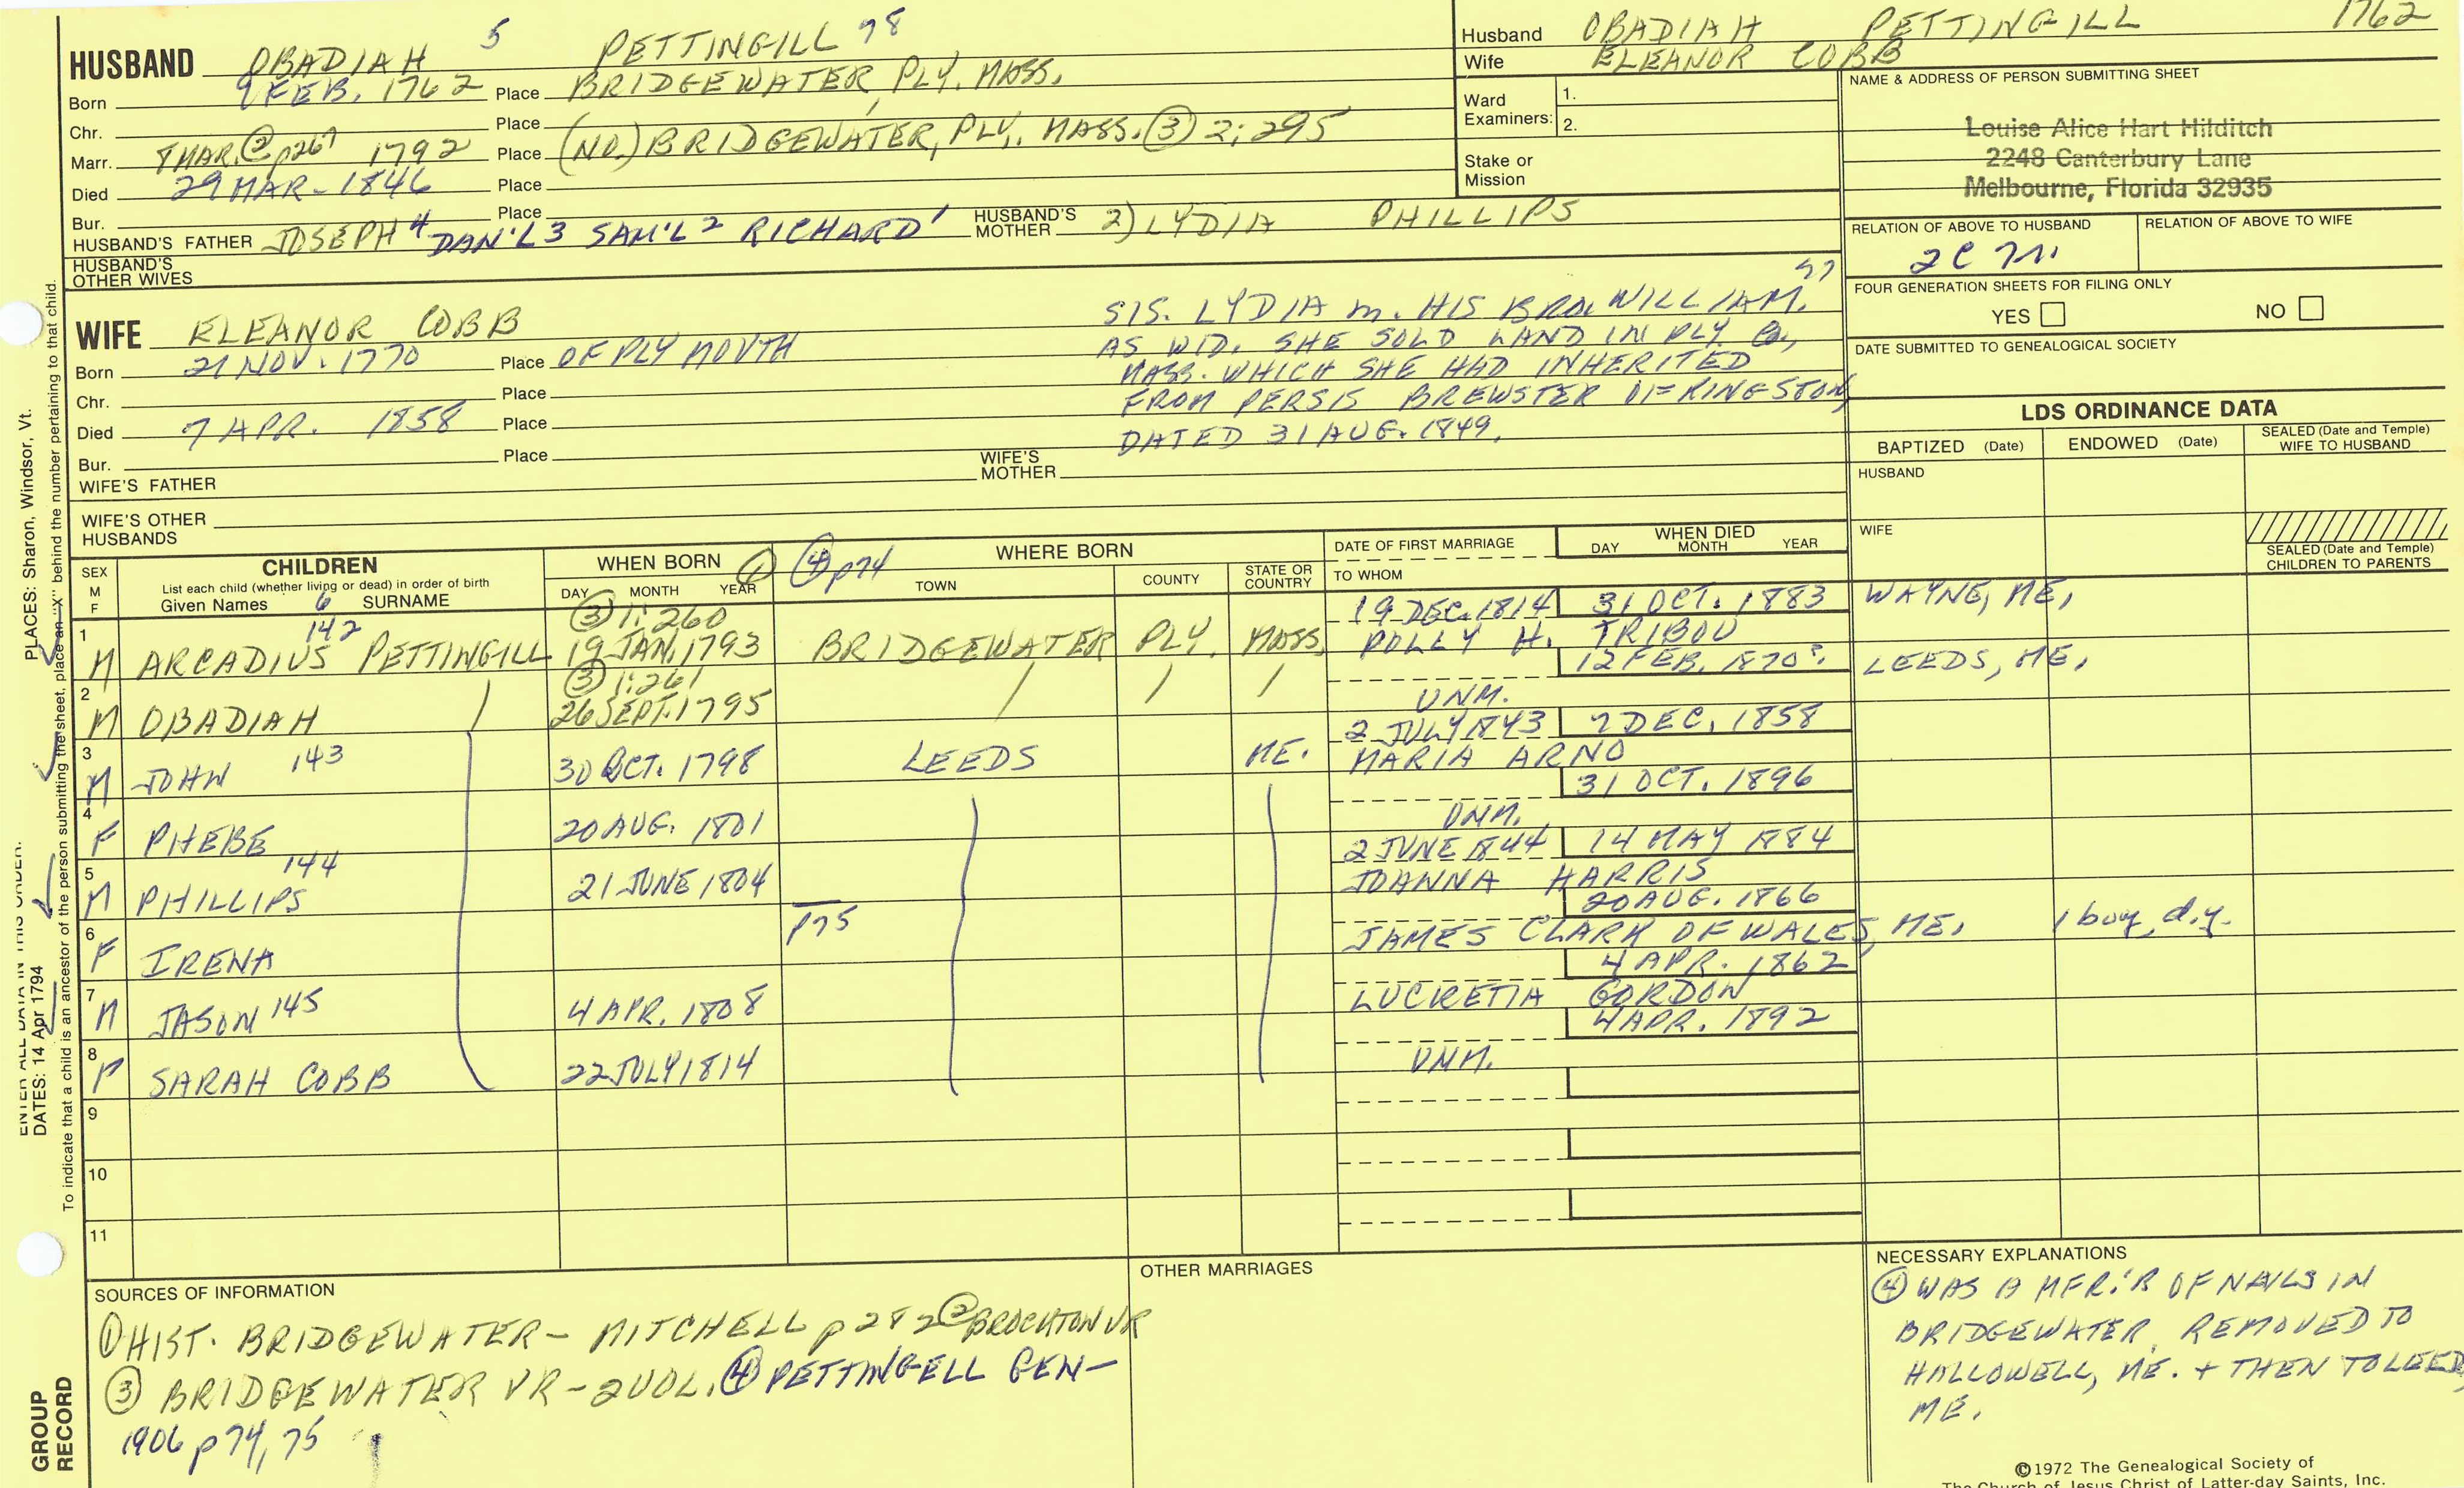 HUSBAND OBADIAH 5 PETTINGILL 98
Born 9 FEB. 1762 Place BRIDGEWATER, PLY. MASS.
Chr. Place
Marr. 8 MAR. ② p267 1792 Place (NO.) BRIDGEWATER, PLY. MASS. ③ 2:295
Died 29 MAR - 1846 Place
Bur. Place
HUSBAND'S FATHER JOSEPH 4 DAN'L 3 SAM'L 2 RICHARD 1 HUSBAND'S MOTHER 2) LYDIA PHILLIPS
HUSBAND'S OTHER WIVES
WIFE ELEANOR COBB
Born 21 NOV. 1770 Place OF PLYMOUTH
Chr. Place
Died 7 APR. 1858 Place
Bur. Place
WIFE'S FATHER WIFE'S MOTHER
WIFE'S OTHER HUSBANDS
97
SIS. LYDIA m. HIS BRO. WILLIAM.
AS WID. SHE SOLD LAND IN PLY. Co.,
MASS. WHICH SHE HAD INHERITED
FROM PERSIS BREWSTER OF KINGSTON,
DATED 31 AUG. 1849.
Husband OBADIAH PETTINGILL 1762
Wife ELEANOR COBB
Ward Examiners: 1.
2.
Stake or Mission
NAME & ADDRESS OF PERSON SUBMITTING SHEET
Louise Alice Hart Hilditch
2248 Canterbury Lane
Melbourne, Florida 32935
RELATION OF ABOVE TO HUSBAND RELATION OF ABOVE TO WIFE
2C
FOUR GENERATION SHEETS FOR FILING ONLY
YES NO
DATE SUBMITTED TO GENEALOGICAL SOCIETY
LDS ORDINANCE DATA
BAPTIZED (Date) ENDOWED (Date) SEALED (Date and Temple) WIFE TO HUSBAND
HUSBAND
WIFE
SEALED (Date and Temple) CHILDREN TO PARENTS
SEX M F CHILDREN List each child (whether living or dead) in order of birth Given Names 6 SURNAME
WHEN BORN ① DAY MONTH YEAR
④ p74 WHERE BORN TOWN COUNTY STATE OR COUNTRY
DATE OF FIRST MARRIAGE TO WHOM
WHEN DIED DAY MONTH YEAR
1 M ARCADIUS 142 PETTINGILL ③ 1:260 19 JAN. 1793 BRIDGEWATER PLY. MASS. 19 DEC. 1814 POLLY H. TRIBOU 31 OCT. 1883 WAYNE, ME.
2 M OBADIAH / ③ 1:261 26 SEPT. 1795 / / / UNM. 12 FEB. 1870?. LEEDS, ME.
3 M JOHN 143 30 OCT. 1798 LEEDS ME. 2 JULY 1843 MARIA ARNO 7 DEC. 1858
4 F PHEBE 20 AUG. 1801 UNM. 31 OCT. 1896
5 M PHILLIPS 144 21 JUNE 1804 2 JUNE 1844 JOANNA HARRIS 14 MAY 1884
6 F IRENA p75 JAMES CLARK OF WALES, ME. 20 AUG. 1866 1 boy, d.y.
7 M JASON 145 4 APR. 1808 LUCRETIA GORDON 4 APR. 1862
8 F SARAH COBB 22 JULY 1814 UNM. 4 APR. 1892
9
10
11
SOURCES OF INFORMATION
① HIST. BRIDGEWATER - MITCHELL p 282 ② BROCKTON VR
③ BRIDGEWATER VR - 2 VOL. ④ PETTINGELL GEN -
1906 p 74, 75
OTHER MARRIAGES
NECESSARY EXPLANATIONS
④ WAS A MFR.'R OF NAILS IN
BRIDGEWATER. REMOVED TO
HALLOWELL, ME. + THEN TO LEEDS,
ME.
©1972 The Genealogical Society of
The Church of Jesus Christ of Latter-day Saints, Inc.
PLACES: Sharon, Windsor, Vt.
ENTER ALL DATA IN THIS ORDER:
DATES: 14 Apr 1794
To indicate that a child is an ancestor of the person submitting the sheet, place an "X" behind the number pertaining to that child.
GROUP RECORD